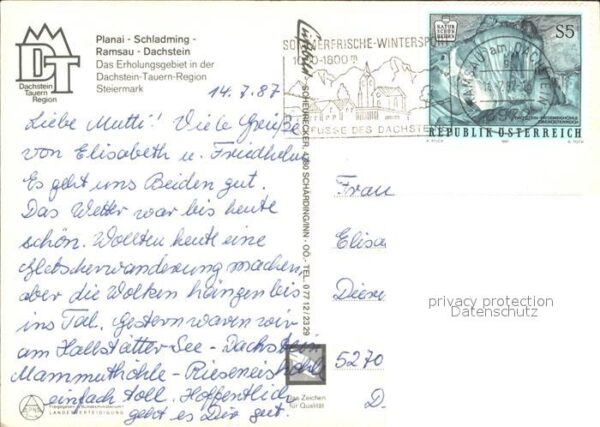 Planai - Schladming -
Ramsau - Dachstein
Das Erholungsgebiet in der
Dachstein-Tauern-Region
Steiermark
DT
Dachstein
Tauern
Region
14.7.87
Liebe Mutti! Viele Grüße
von Elisabeth u. Friedhelm
Es geht uns Beiden gut.
Das Wetter war bis heute
schön. Wollten heute eine
Gletscherwanderung machen
aber die Wolken hängen bis
ins Tal. Gestern waren wir
am Hallstätter See - Dachstein
Mammuthöhle - Rieseneishöhle
einfach toll. Hoffentlich
geht es Dir gut.
LANDESVERTEIDIGUNG
SCHEURECKER, 4780 SCHÄRDING/INN - OÖ.- TEL. 0 77 12/23 29
Das Zeichen
für Qualität
SOMMERFRISCHE-WINTERSPORT
1000-1800 m
FUSSE DES DACHSTEIN
RAMSAU am DACHSTEIN
NATUR
S5
REPUBLIK ÖSTERREICH
Frau
Elisa
Diere
5270
D
privacy protection
Datenschutz